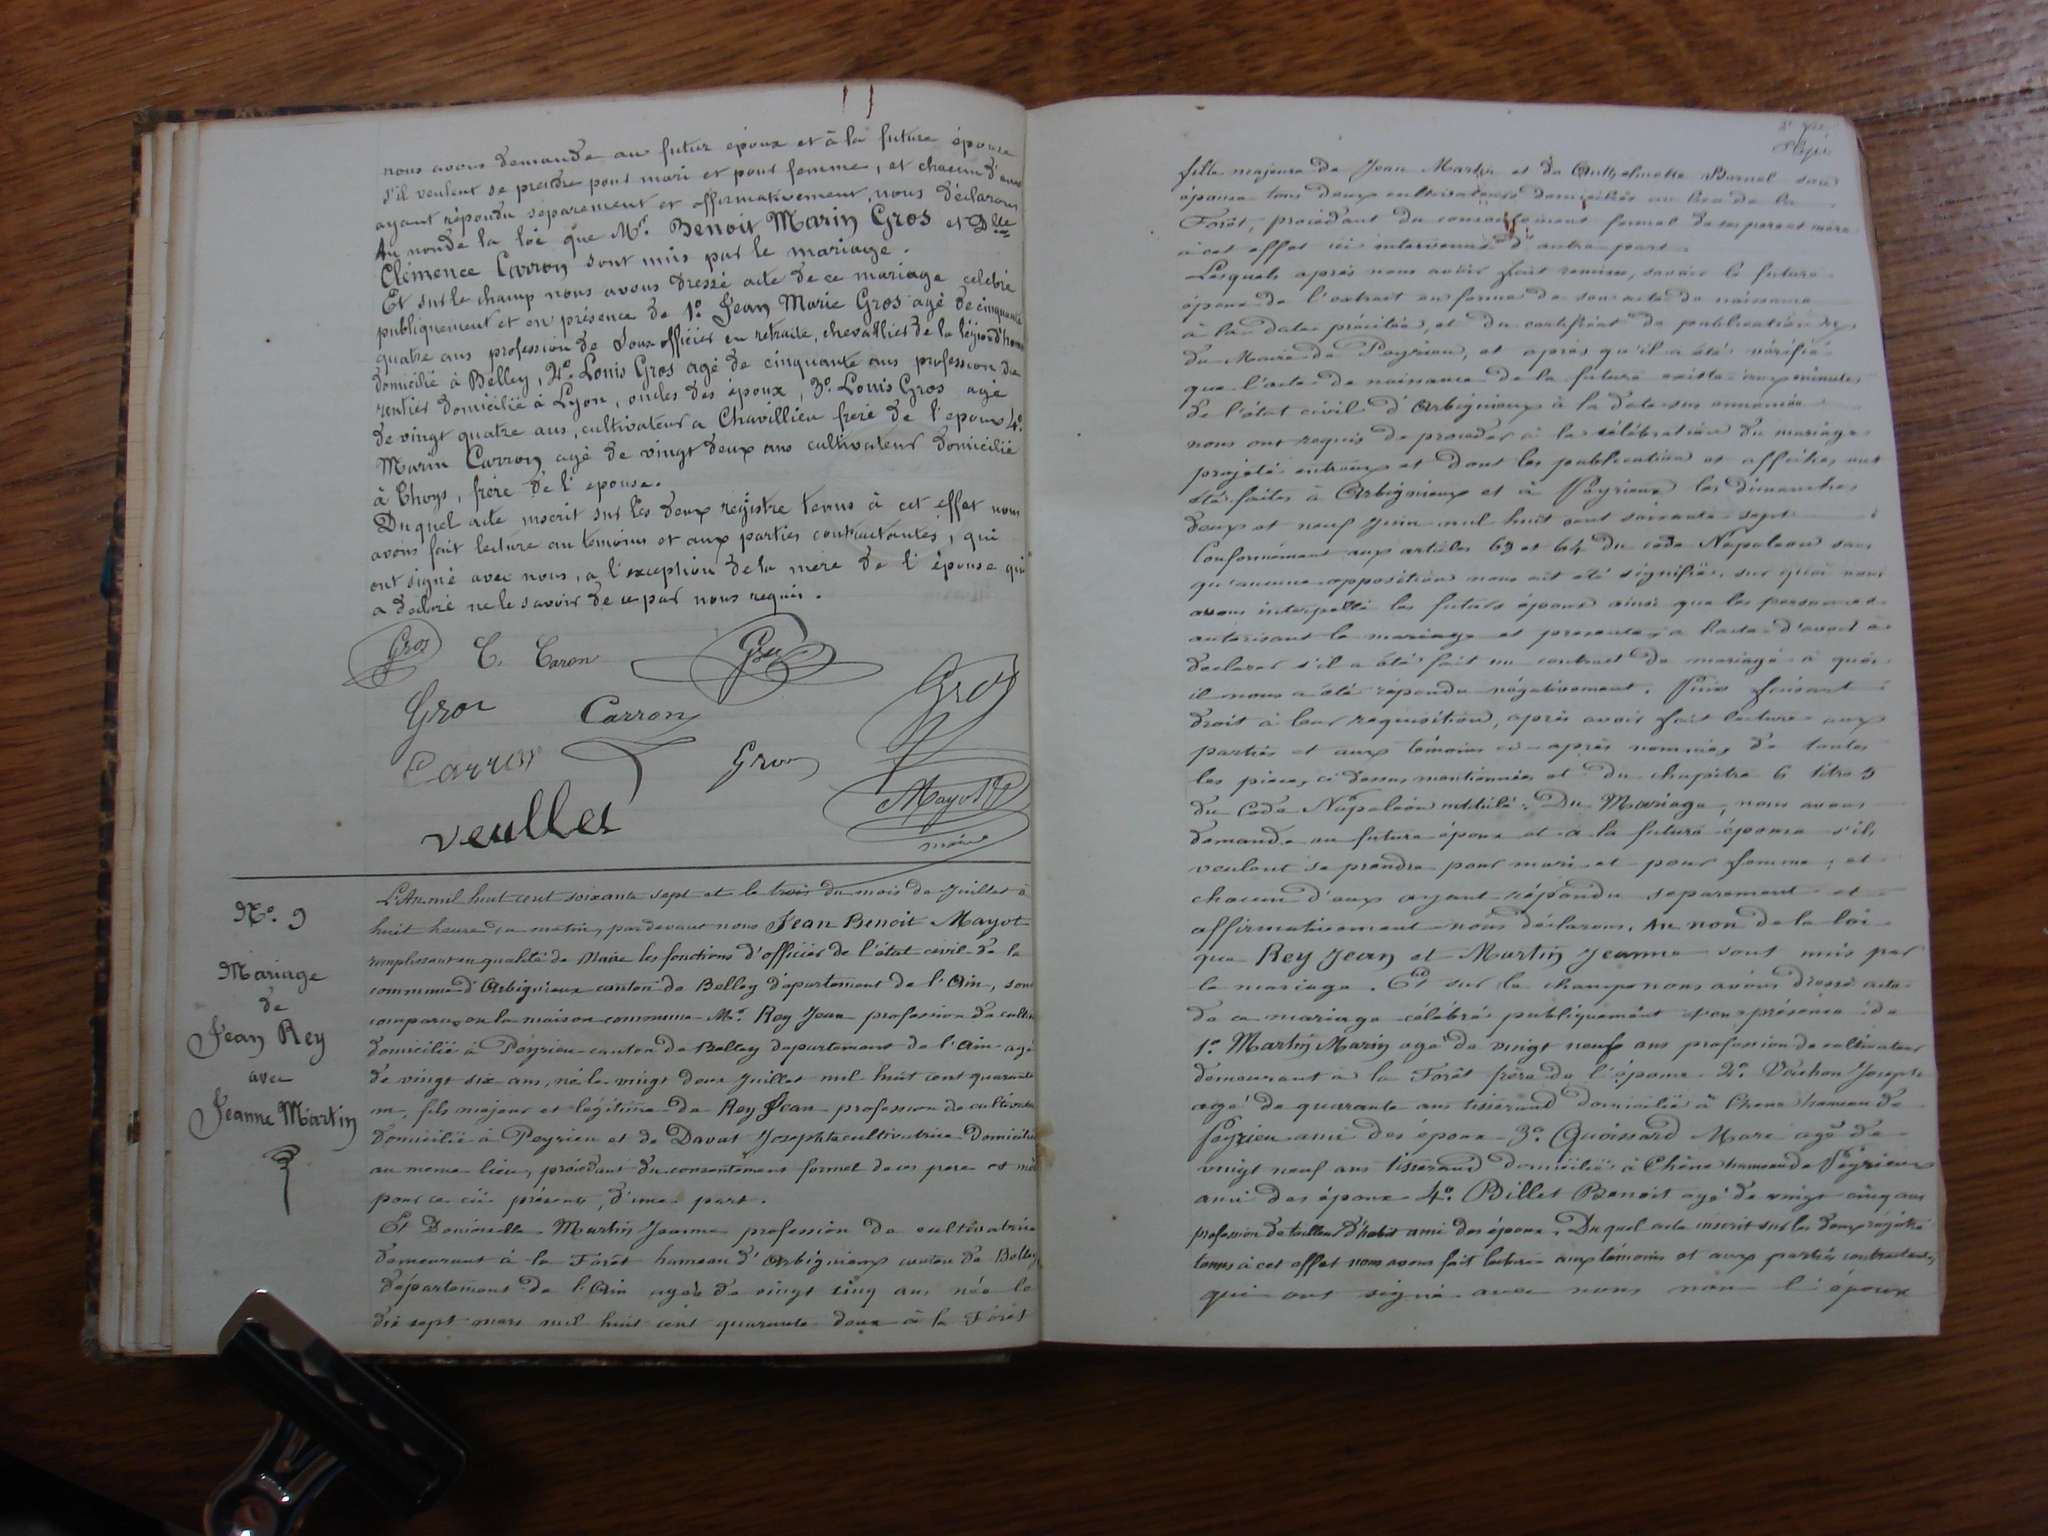 nous avons demande au futur époux et à la future épouse
s'il veulent se prendre pour mari et pour femme, et chacun d'eux
ayant répondu séparement et affirmativement, nous déclarons
Au nom de la loi que Mr. Benoit Marin Gros et Dlle
Clémence Carron sont unis par le mariage.
Et sur le champ nous avons dressé acte de ce mariage célébré
publiquement et en présence de 1º. Jean Marie Gros agé de cinquante
quatre ans profession de Sous officier en retraite, chevallier de la légion d'honn
domicilié à Belley, 2º. Louis Gros agé de cinquante ans profession de
rentier domicilié à Lyon, oncles des époux, 3º. Louis Gros agé
de vingt quatre ans, cultivateur a Chavillieu frere de l'epoux 4º.
Marin Carron agé de vingt deux ans cultivateur domicilié
à Thoys, frère de l'epouse.
Duquel acte inscrit sur les deux régistre tenus à cet effet nous
avons fait lecture au temoins et aux parties contractantes, qui
ont signé avec nous, a l'exception de la mère de l'épouse qui
a déclaré ne le savoir de ce par nous requis.
Gros C. Caron Gros
Gros Carron Gros
Carron Gros
Mayot
Veullet maire
L'An mil huit cent soixante sept et le trois du mois de Juillet à
Nº. 9
huit heure du matin, pardevant nous Jean Benoit Mayot
remplissant en qualité de Maire les fonctions d'officier de l'état civil de la
Mariage
commune d'Arbignieux canton de Belley département de l'Ain, sont
de
comparu en la maison commune Mr. Rey Jean profession de cultiv
Jean Rey
domicilié à Peyrieu canton de Belley departement de l'Ain agé
avec
de vingt six ans, né le vingt deux Juillet mil huit cent quarante
Jeanne Martin
un, fils majeur et legitime de Rey Jean profession de cultivateur
domicilié à Peyrieu et de Davat Josephte cultivatrice domicilié
au meme lieu, procédant du consentement formel de ces pere et mère
pour ce ici présents, d'une part.
Et Demoiselle Martin Jeanne profession de cultivatrice
demeurant à la Forêt hameau d'Arbignieux canton de Belley
département de l'Ain agée de vingt cinq ans née le
dix sept mars mil huit cent quarante deux à la Forêt
fille majeure de Jean Martin et de Anthelmette Burnel son
épouse tous deux cultivateurs domiciliés au lieu de la
Forêt, procédant du consentement formel de ses pere et mère
à cet effet ici intervenus d'autre part.
Lesquels après nous avoir fait remise, savoir le futur
époux de l'extrait en forme de son acte de naissance
à la date précitée, et du certificat de publication
du Maire de Peyrieu, et après qu'il a été vérifié
que l'acte de naissance de la future existe aux minutes
de l'état civil d'Arbignieux à la date sus énoncée
nous ont requis de procéder à la célébration du mariage
projeté entr'eux et dont les publications et affiches ont
été faites à Arbignieux et à Peyrieux les dimanches
deux et neuf Juin mil huit cent soixante sept
Conformément aux articles 63 et 64 du code Napoleon sans
qu'aucune opposition nous ait été signifiée, sur quoi nous
avons interpellé les futurs époux ainsi que les personnes
autorisant le mariage et presentes a l'acte d'avoir a
declarer s'il a été fait un contract de mariage à quoi
il nous a été répondu négativement. Puis faisant
droit à leur requisition, après avoir fait lecture aux
parties et aux témoins ci-après nommés de toutes
les pieces ci dessus mentionnées et du chapitre 6 titre 5
du Code Napoléon intitulé: Du Mariage, nous avons
demande au future époux et a la future épouse s'ils
veulent se prendre pour mari et pour femme, et
chacun d'eux ayant répondu separement et
affirmativement nous déclarons, Au non de la loi
que Rey Jean et Martin Jeanne sont unis par
le mariage. Et sur le champ nous avons dressé acte
de ce mariage célébré publiquement en présence de
1º. Martin Marin agé de vingt neuf ans profession de cultivateur
demeurant à la Forêt frère de l'épouse. 2º. Vachon Joseph
agé de quarante ans tisserand domicilié à Chene hameau de
Peyrieu ami des époux 3º. Quoissard Marc agé de
vingt neuf ans tisserand domicilié à Chêne hameau de Peyrieux
ami des époux 4º. Billet Benoit agé de vingt cinq ans
profession de tailleur d'habit ami des époux. Duquel acte inscrit sur les deux régistre
tenus à cet effet nous avons fait lecture aux témoins et aux parties contractantes
qui ont signé avec nous non l'époux